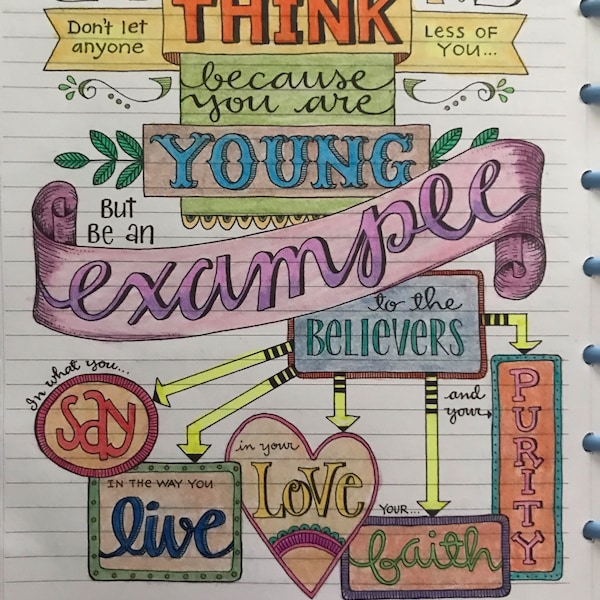 Don't let
anyone
THINK
Less of
You...
because
you are
YOUNG
But
Be an
example
to the
BELIEVERS
In what you...
say
IN THE WAY YOU
live
in your
LOVE
YOUR...
faith
and
your
PURITY